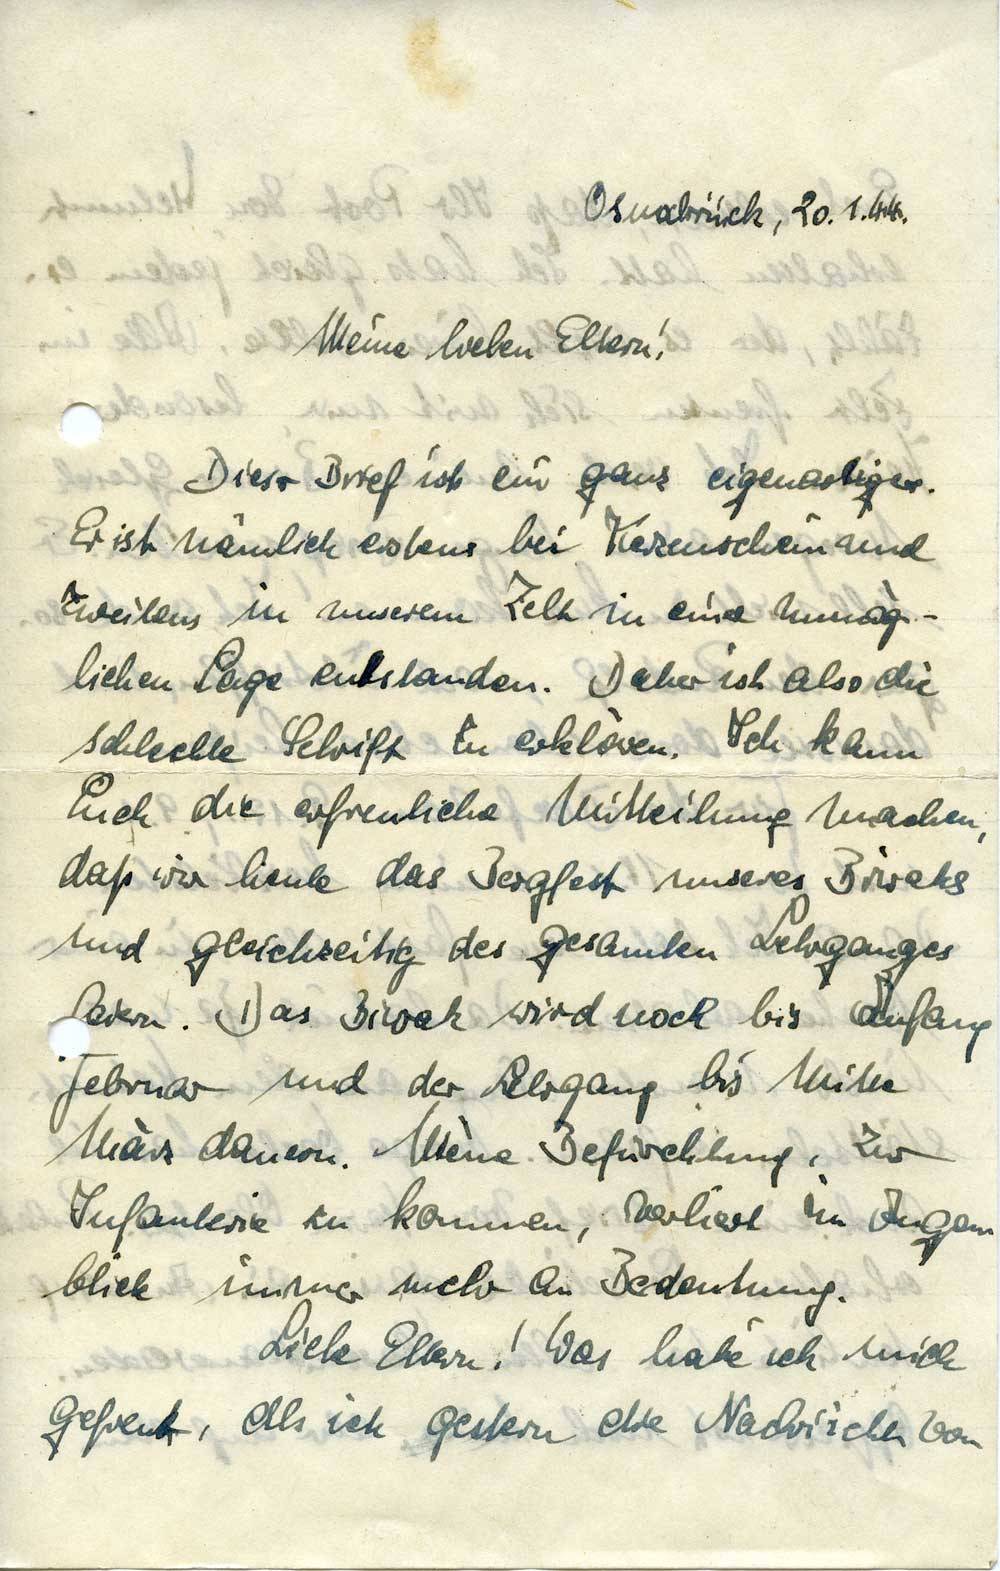 Osnabrück, 20.1.44.
Meine lieben Eltern!
Dieser Brief ist ein ganz eigenartiger.
Er ist nämlich erstens bei Kerzenschein und
zweitens in unserem Zelt in eine unmög-
lichen Lage entstanden. Daher ist also die
schlechte Schrift zu erklären. Ich kann
Euch die erfreuliche Mitteilung machen,
daß wir heute das Bergfest unseres Biwaks
und gleichzeitig des gesamten Lehrganges
feiern. Das Biwak wird noch bis Anfang
Februar und der Lehrgang bis Mitte
März dauern. Meine Befürchtung, zur
Infanterie zu kommen, verliert im Augen
blick immer mehr an Bedeutung.
Liebe Eltern! Was habe ich mich
gefreut, als ich gestern die Nachricht von